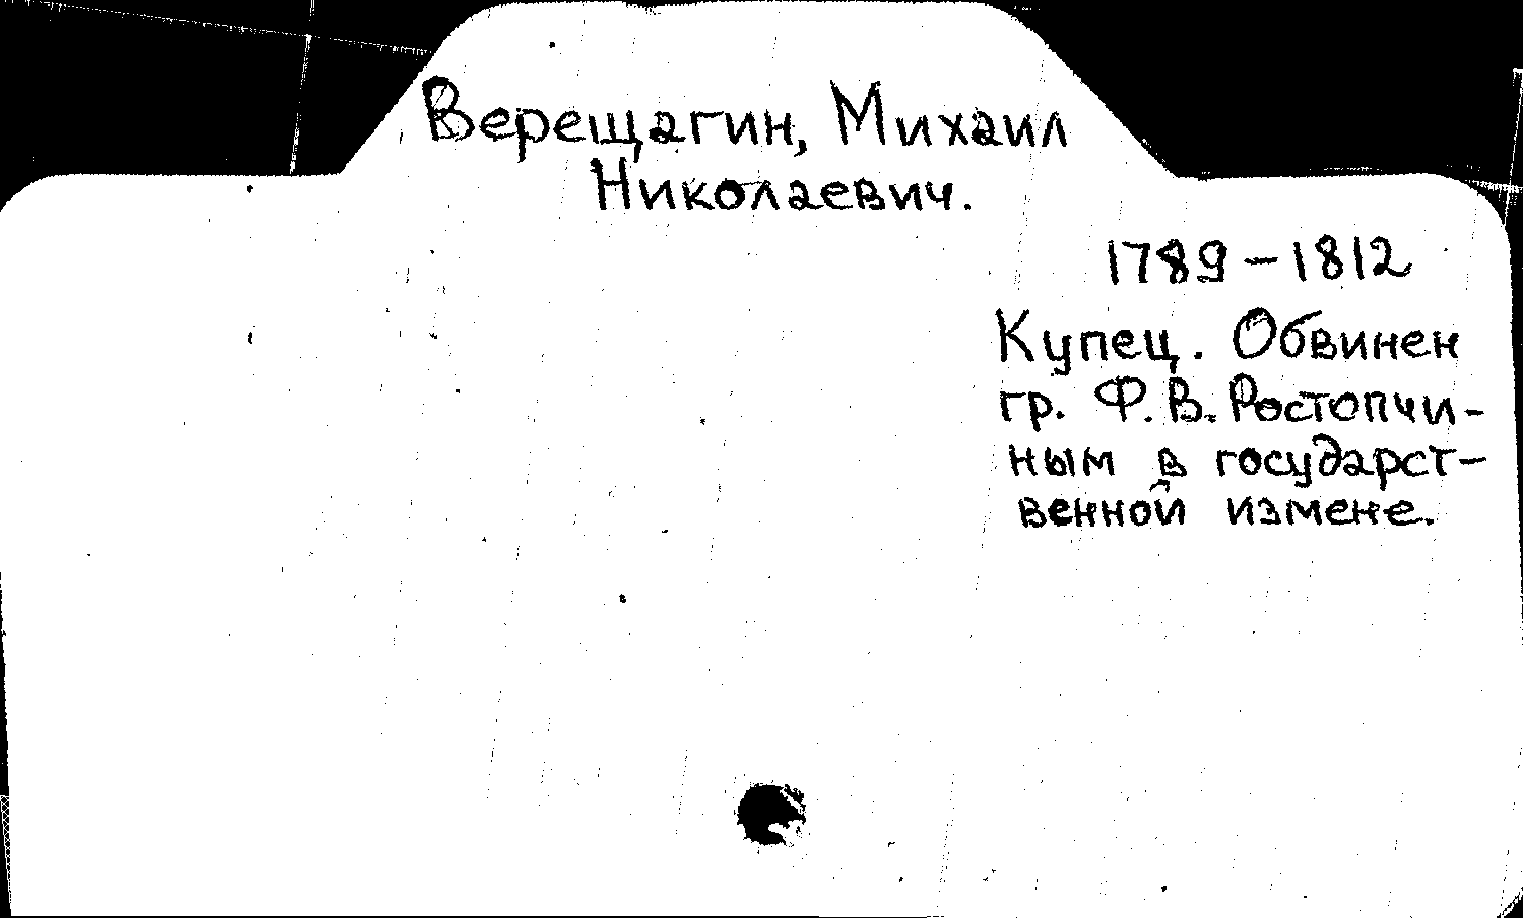 Верещагин, Михаил
Николаевич.
1789-1812
Купец. Обвинен
гр. Ф.В. Ростопчи-
ным в государст-
венной измене.